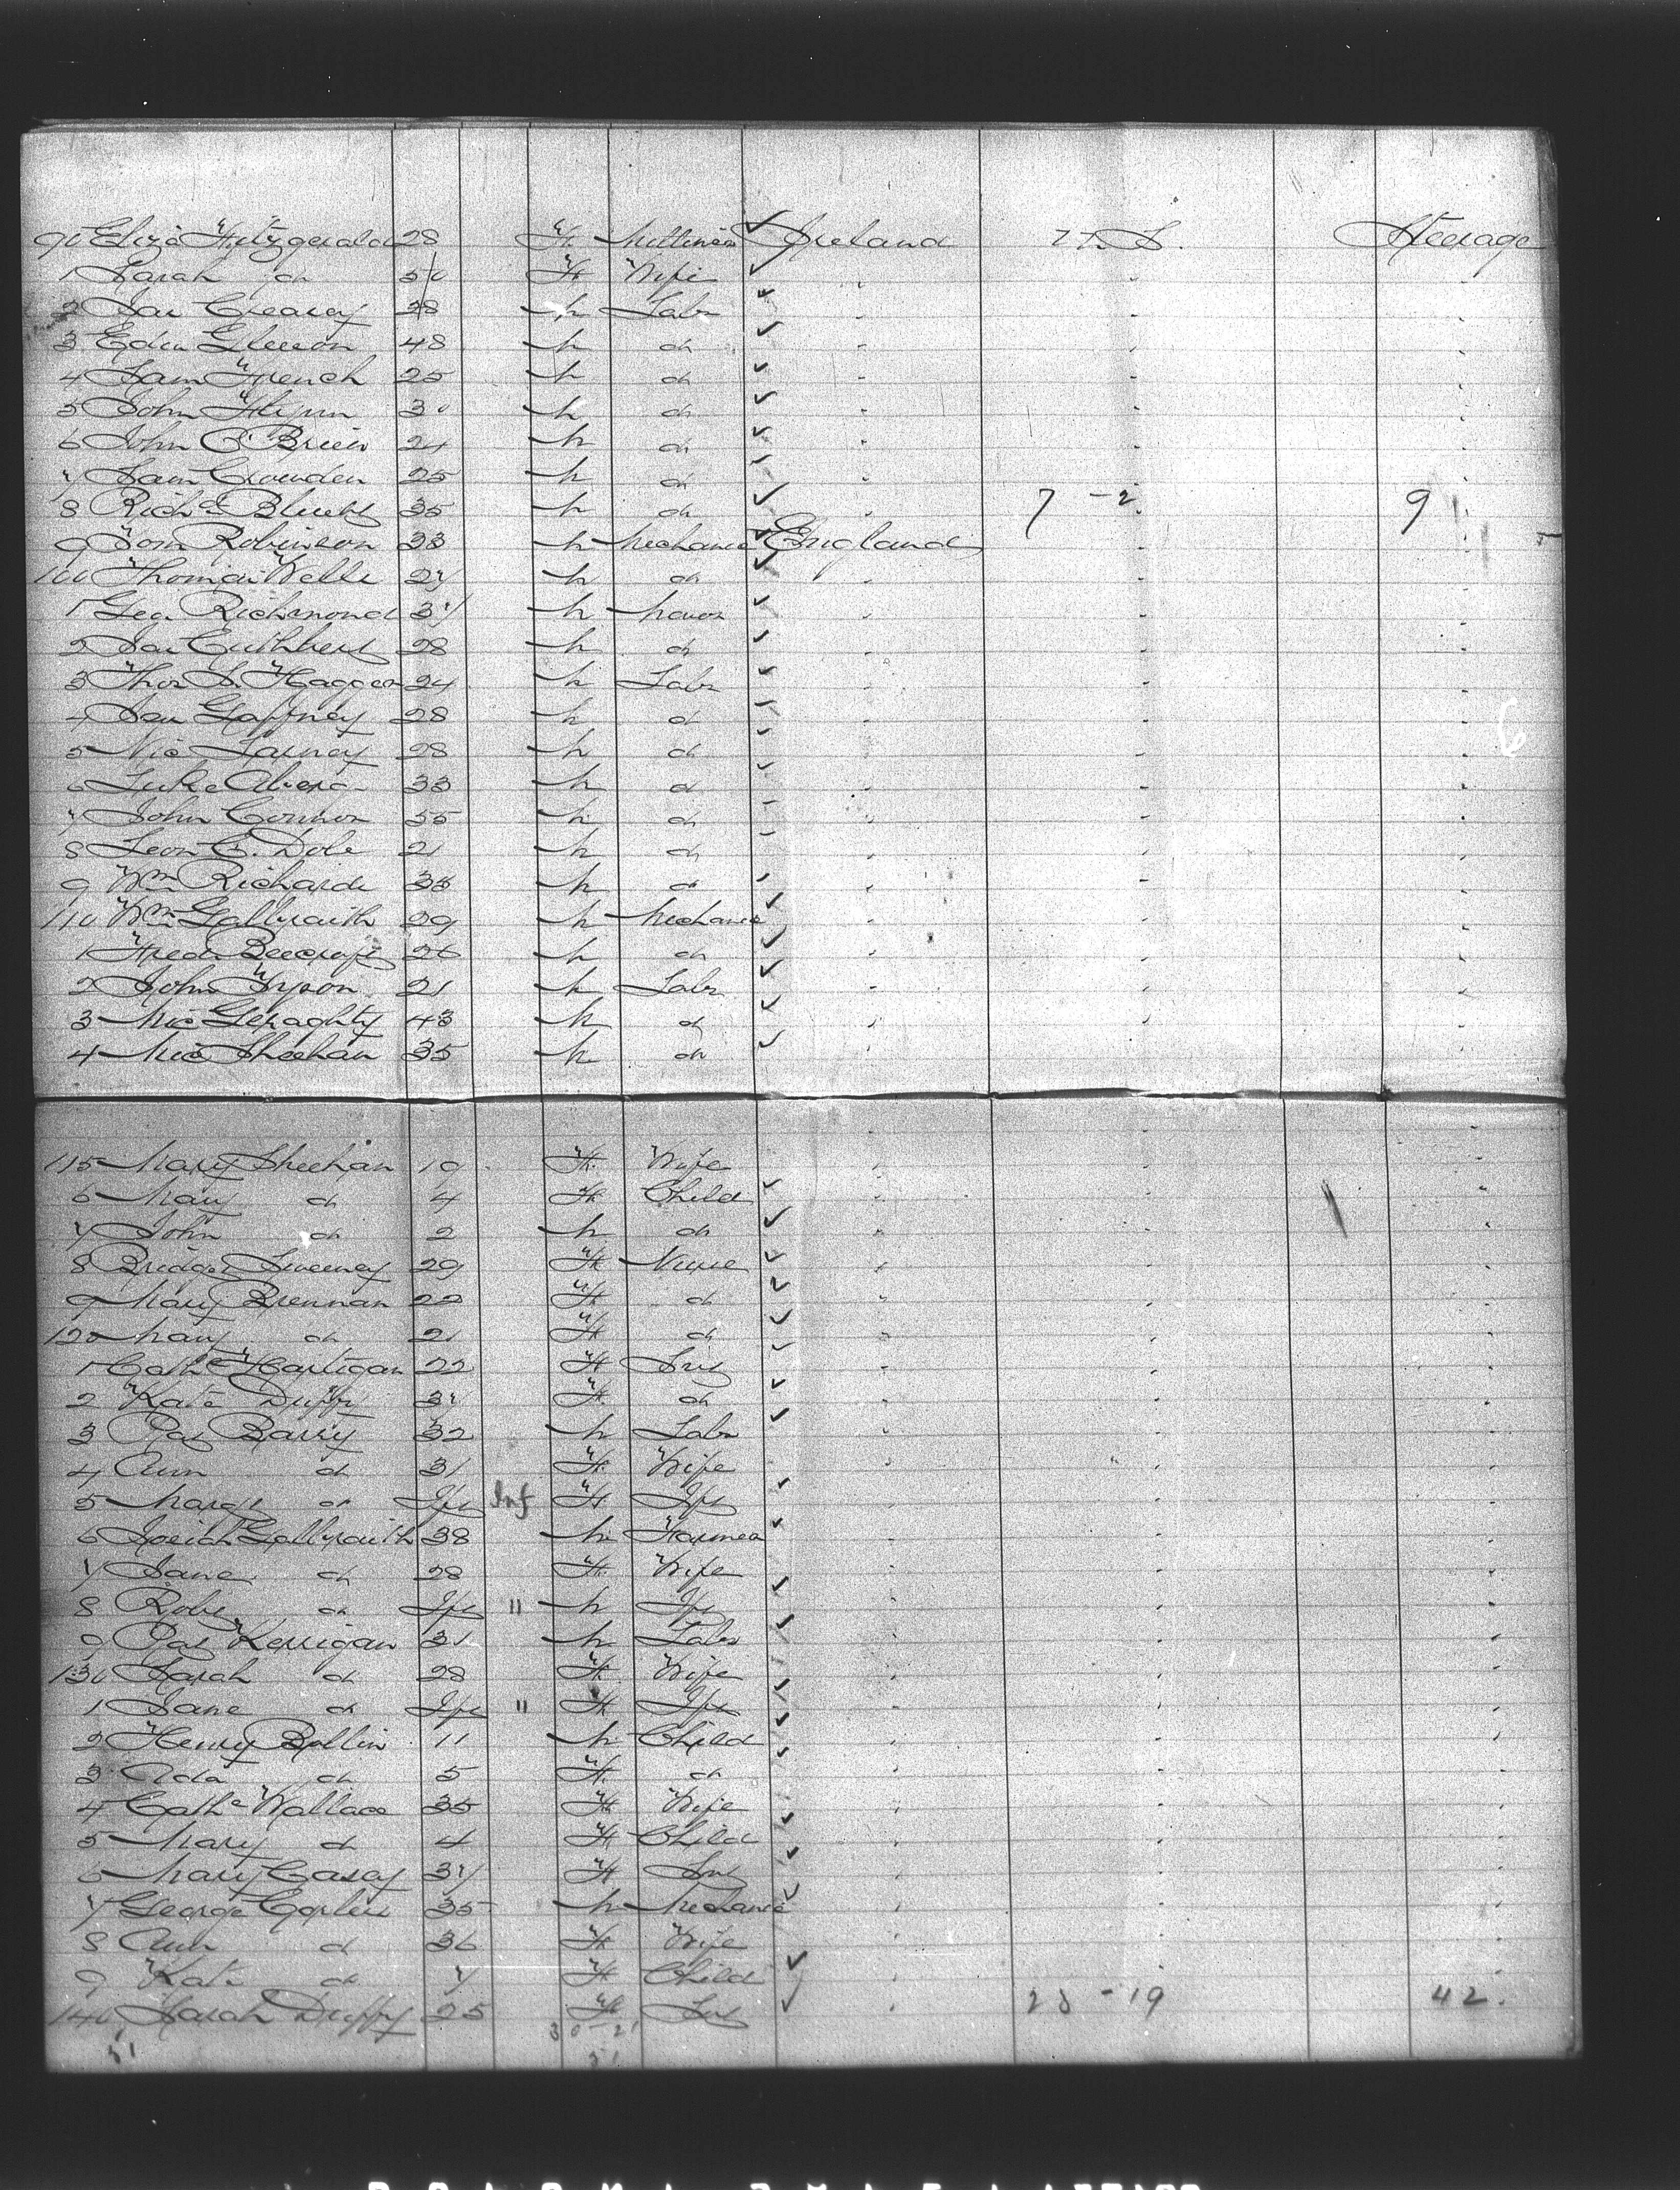 90 Eliza Fitzgerald 28 F Milliner Ireland U.S. Steerage
1 Sarah do 50 F Wife "
2 Jas Creary 28 M Labr "
3 Edw Gleeson 48 M do "
4 Sam French 25 M do "
5 John Flynn 30 M do "
6 John O'Brien 24 M do "
7 Sam Crowden 25 M do "
8 Richd 35 M do " 7 - 2 9
9 Tom Robinson 33 M Mechanic England
100 Thomas Wells 27 M do "
1 Geo. Richmond 37 M Mason "
2 Jas Cuthbert 28 M do "
3 Thos S. Haggar 24 M Labr "
4 Gaffney 28 M do "
5 Mic 28 M do "
6 Luke 33 M do "
7 John Connor 55 M do "
8 Leon C. Dole 21 M do "
9 Wm Richards 35 M do "
110 Wm Galbraith 29 M Mechanic "
1 Fred Beecroft 26 M do "
2 John Tryon 21 M Labr "
3 Mic Geraghty 43 M do "
4 Mic Sheehan 35 M do
6
115 Mary Sheehan 19 F Wife "
6 Mary do 4 F Child "
7 John do 2 M do "
8 Bridget Sweeney 29 F Nurse "
9 Mary Brennan 22 F do "
120 Mary do 21 F do "
1 Cathe Hartigan 22 F Srv "
2 Kate Duffy 37 F do "
3 Pat Barry 32 M Labr "
4 Ann do 31 F Wife "
5 Margt do Inf Inf F Inf
6 Josiah Galbraith 38 M Farmer "
7 Jane do 28 F Wife "
8 Robt do Inf " M Inf "
9 Pat Kerrigan 31 M Labr "
130 Sarah do 28 F Wife "
1 Jane do Inf " F Inf "
2 Henry Bollin 11 M Child "
3 Ada do 5 F do "
4 Cathe Wallace 35 F Wife "
5 Mary do 4 F Child "
6 Mary Casey 37 F Srv "
7 George Corless 35 M Mechanic "
8 Ann do 36 F Wife "
9 Kate do 7 F Child "
140 Sarah Duffy 25 F Srv " 23 - 19 42.
30 - 21
51 51